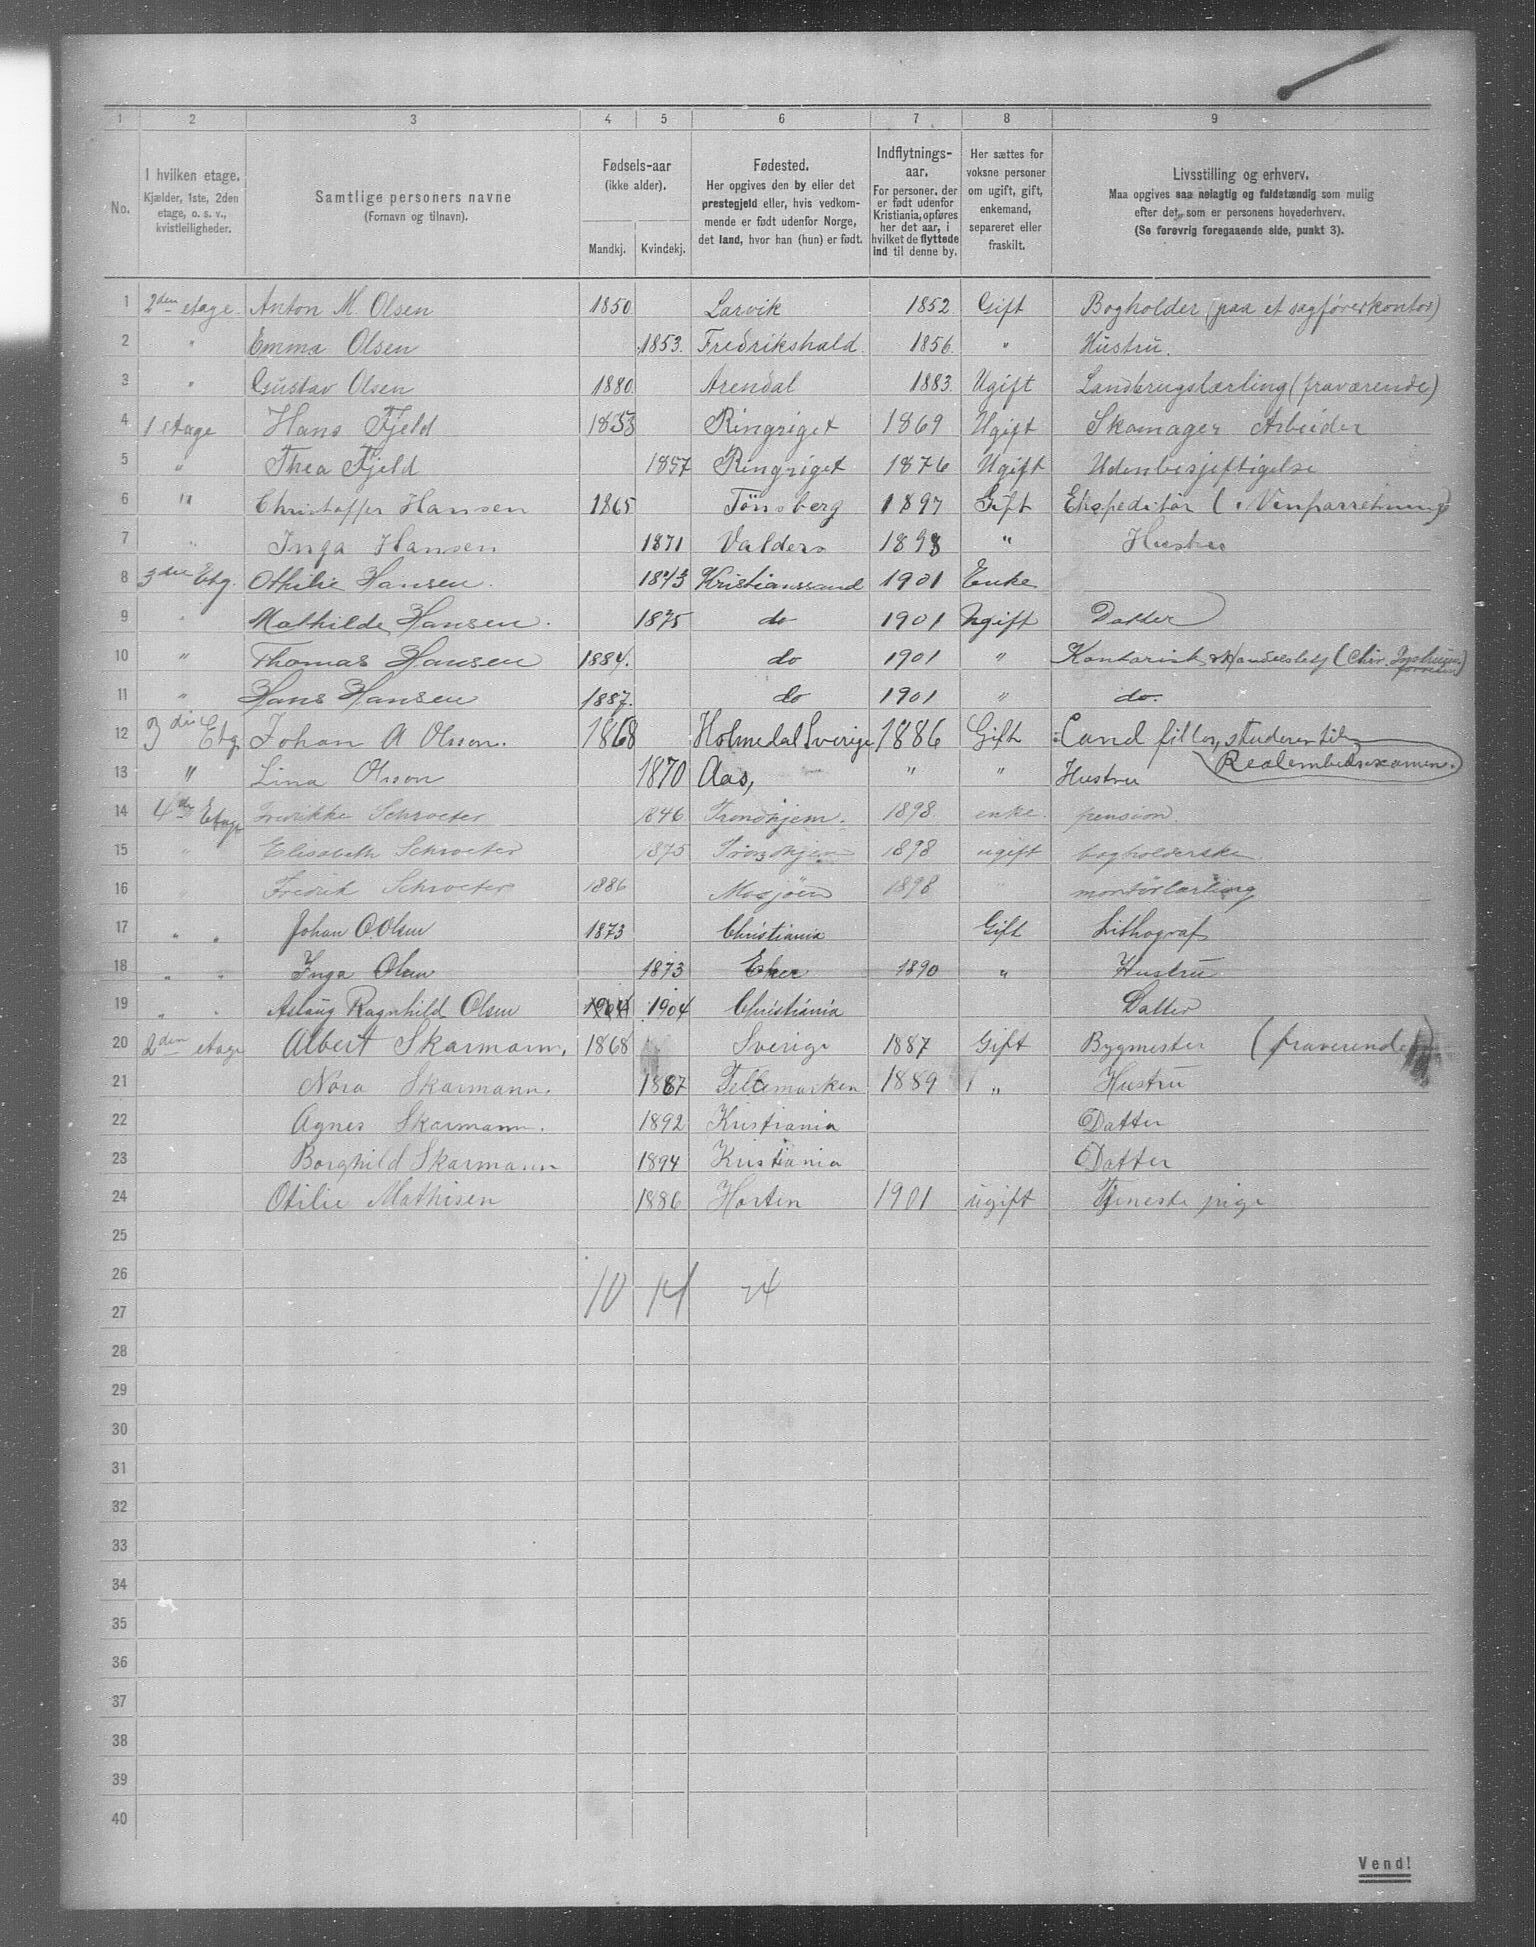 1 2 3 4 5 6 7 8 9
No.
I hvilken etage.
Kjælder, 1ste, 2den
etage, o. s. v.,
kvistleiligheder.
Samtlige personers navne
(Fornavn og tilnavn).
Fødsels-aar
(ikke alder).
Mandkj. Kvindekj.
Fødested.
Her opgives den by eller det
prestegjeld eller, hvis vedkom-
mende er født udenfor Norge,
det land, hvor han (hun) er født.
Indflytnings-
aar.
For personer, der
er født udenfor
Kristiania, opføres
her det aar, i
hvilket de flyttede
ind til denne by.
Her sættes for
voksne personer
om ugift, gift,
enkemand,
separeret eller
fraskilt.
Livsstilling og erhverv.
Maa opgives saa nøiagtig og fuldstændig som mulig
efter det, som er personens hovederhverv.
(Se forøvrig foregaaende side, punkt 3).
1 2den etage Anton M. Olsen 1850 Larvik 1852 Gift Bogholder (paa et sagførerkontor)
2 " Emma Olsen 1853. Fredrikshald 1856. " Hustru.
3 " Gustav Olsen 1880 Arendal 1883. Ugift Landbrugslærling (fraværende)
4 1 etage Hans Fjeld 1853 Ringriget 1869 Ugift Skomager Arbeider
5 " Thea Fjeld 1857 Ringriget 1876 Ugift Udenbesjeftigelse
6 " Christoffer Hansen 1865 Tønsberg 1897 Gift Ekspeditør (i Vinforretning)
7 " Inga Hansen 1871 Valders 1898 " Hustru
8 3die Etg. Othilie Hansen. 1843 Kristianssand 1901 Enke
9 " Mathilde Hansen. 1875 do 1901 Ugift Datter
10 " Thomas Hansen 1884. do 1901 " Kontorist
11 " Hans Hansen 1887. do 1901 " do.
12 3die Etg. Johan A Olsson. 1868 Holmedal Sverige 1886 Gift Cand filos, studerer til
Realembedsexamen.
13 " Lina Olsson 1870 Aas, " " Hustru
14 4de Etage Fredrikke Schroeter 1846 Trondhjem. 1898 enke. pension.
15 " Elisabeth Schroeter 1875 Trondhjem 1898 ugift bogholderske.
16 " Fredrik Schroeter 1886 Mosjøen 1898 " montørlærling
17 " " Johan O. Olsen 1873 Christiania Gift Lithograf
18 " " Inga Olsen 1873 Eker 1890 " Hustru
19 " " Aslaug Ragnhild Olsen 1904 1904 Christiania Datter
20 2den etage Albert Skarmann. 1868 Sverige 1887 Gift Bygmester (fraverende)
21 Nora Skarmann. 1867 Tellemarken 1889 " Hustru
22 Agnes Skarmann. 1892 Kristiania Datter
23 Borghild Skarmann 1894 Kristiania Datter
24 Otilie Mathisen 1886 Horten 1901 ugift Tjeneste pige
25
26 10 14 24
27
28
29
30
31
32
33
34
35
36
37
38
39
40
Vend!